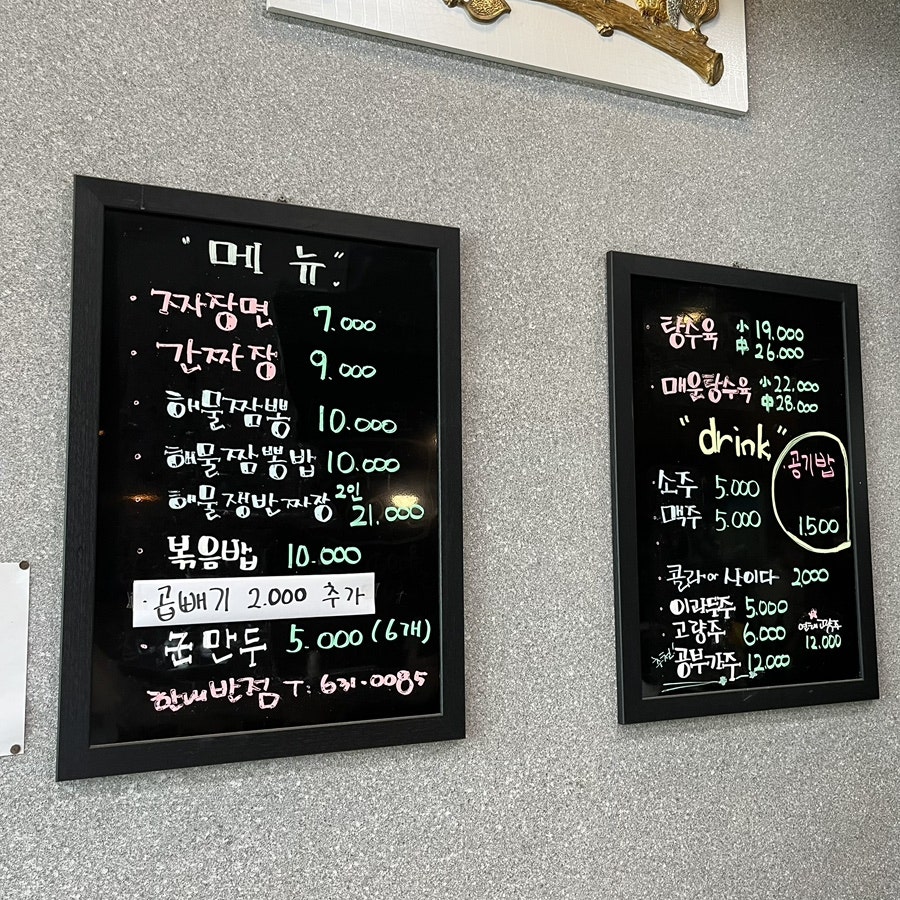 "메뉴"
· 짜장면 7.000
· 간짜장 9.000
· 해물짬뽕 10.000
· 해물짬뽕밥 10.000
· 해물쟁반짜장 2인 21.000
· 볶음밥 10.000
· 곱빼기 2.000 추가
· 군만두 5.000 (6개)
반점 T: 631.0085
· 탕수육 小 19.000
中 26.000
· 매운탕수육 小 22.000
中 28.000
"drink"
공기밥
1.500
· 소주 5.000
· 맥주 5.000
· 콜라 사이다 2000
· 이과두주 5.000
· 고량주 6.000
연태고량주
12.000
공부가주 12.000